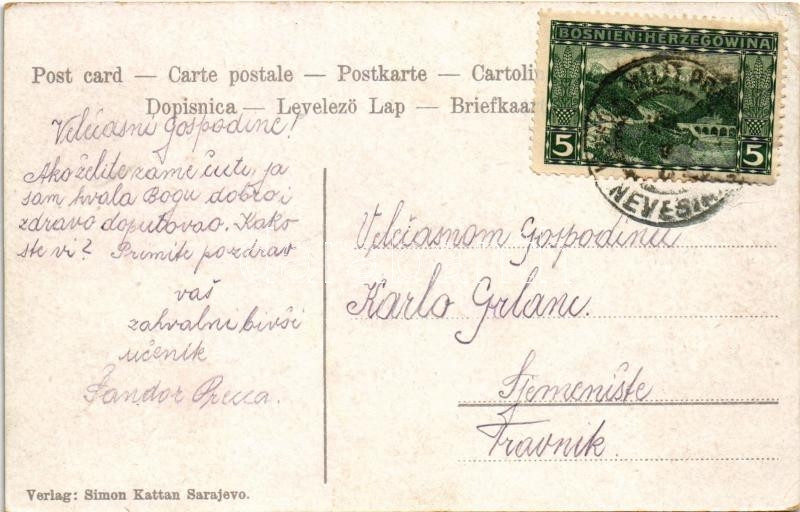 BOSNIEN-HERZEGOWINA
5 5
MILIT. POST
NEVESIN
Post card — Carte postale — Postkarte — Cartolin
Dopisnica — Levelezö Lap — Briefkaart
Velečasni Gospodine!
Ako želite zame čuti, ja
sam hvala Bogu dobro i
zdravo doputovao. Kako
ste vi? Primite pozdrav
vaš
zahvalni bivši
učenik
Šandor
Velečasnom Gospodinu
Karlo Grlanc.
Sjemenište
Travnik.
Verlag: Simon Kattan Sarajevo.